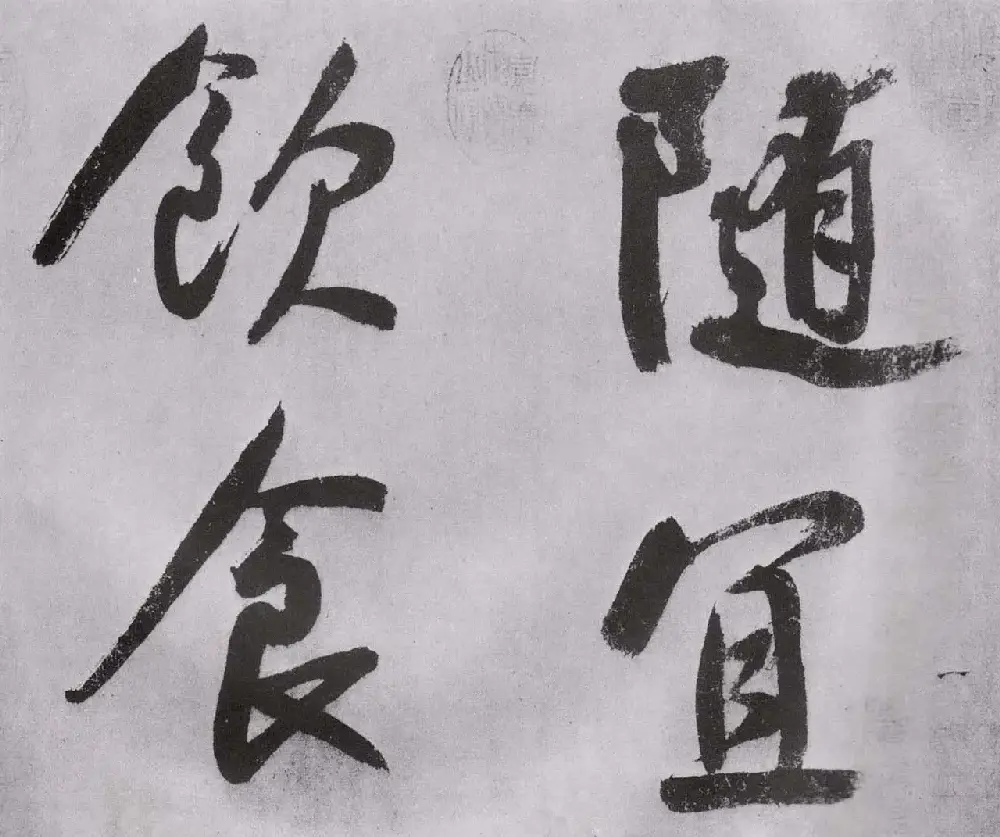 随宜
飲食